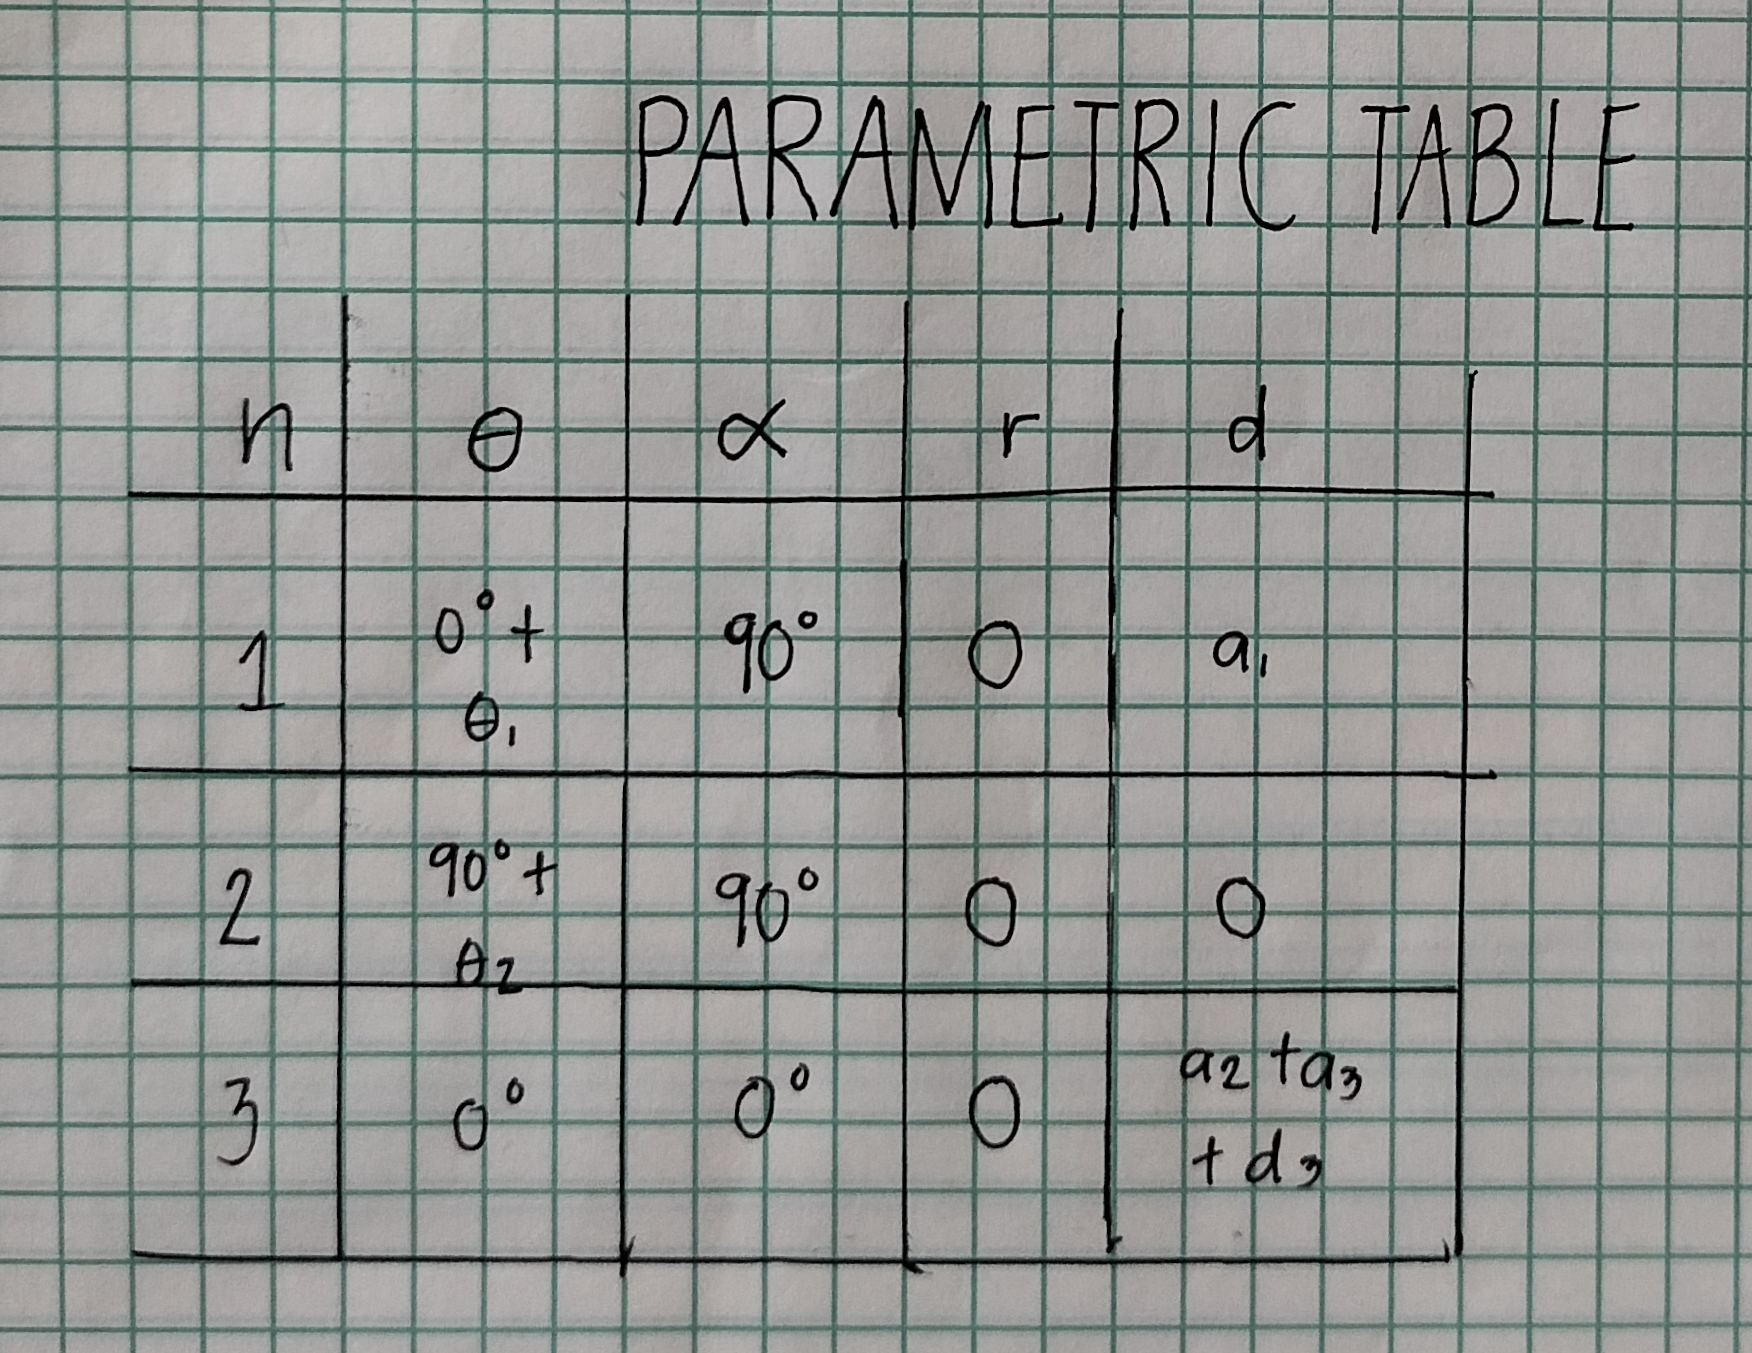 PARAMETRIC TABLE
n θ α r d
1 0° + θ₁ 90° 0 a₁
2 90° + θ₂ 90° 0 0
3 0° 0° 0 a₂ + a₃ + d₃